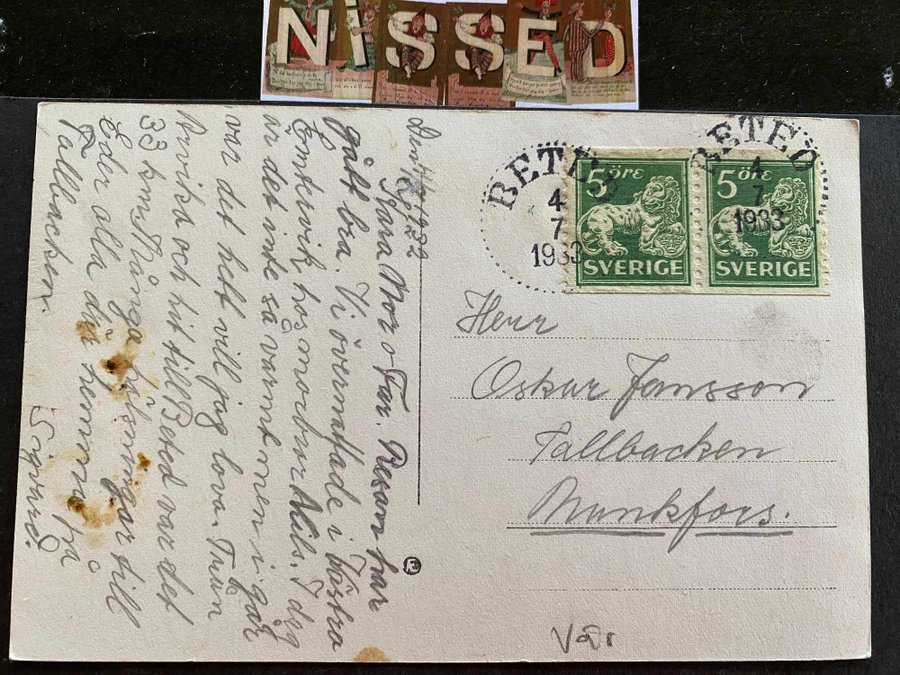 NISSED
BETED
4
7
1933
BETED
4
7
1933
5 ÖRE
SVERIGE
5 ÖRE
SVERIGE
Den
Kära Mor o Far. Resan har
gått bra. Vi övernattade i Västra
Emtervik hos morbror Nils. I dag
är det inte så varmt men i går
var det hett vill jag lova. Från
Arvika och hit till Beted var det
33 km. Många hälsningar till
Eder alla där hemma på
Tallbacken.
Sigvard.
Herr
Oskar Jansson
Tallbacken
Munkfors.